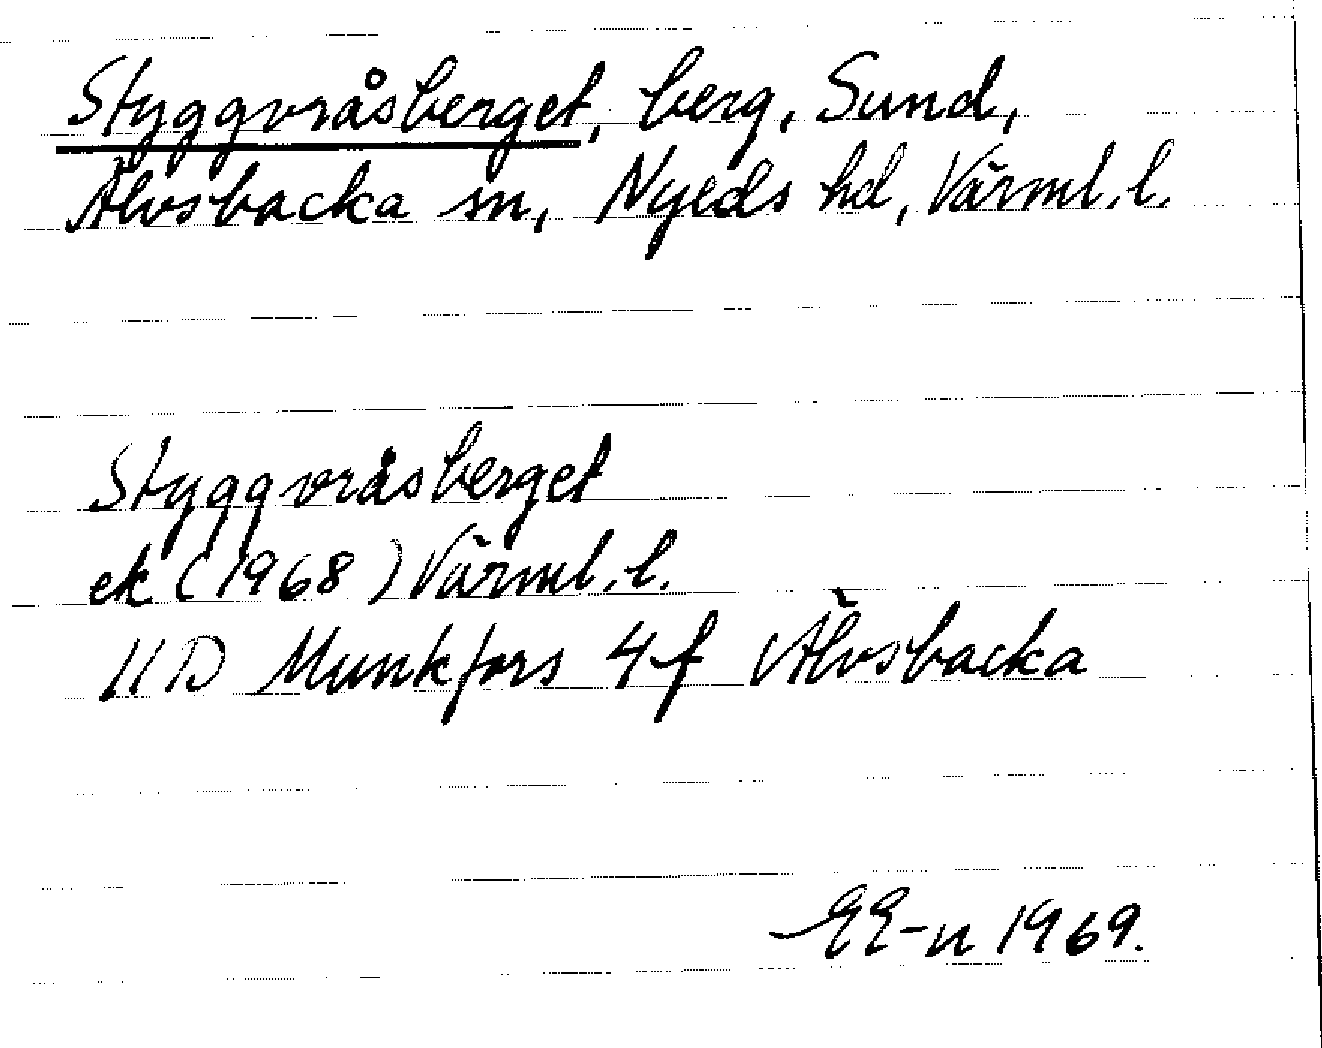 Styggvråsberget, berg, Sund,
Älvsbacka sn, Nyeds hd, Värml. l.
Styggvråsberget
ek (1968) Värml. l.
11D Munkfors 4f Älvsbacka
EE-n 1969.